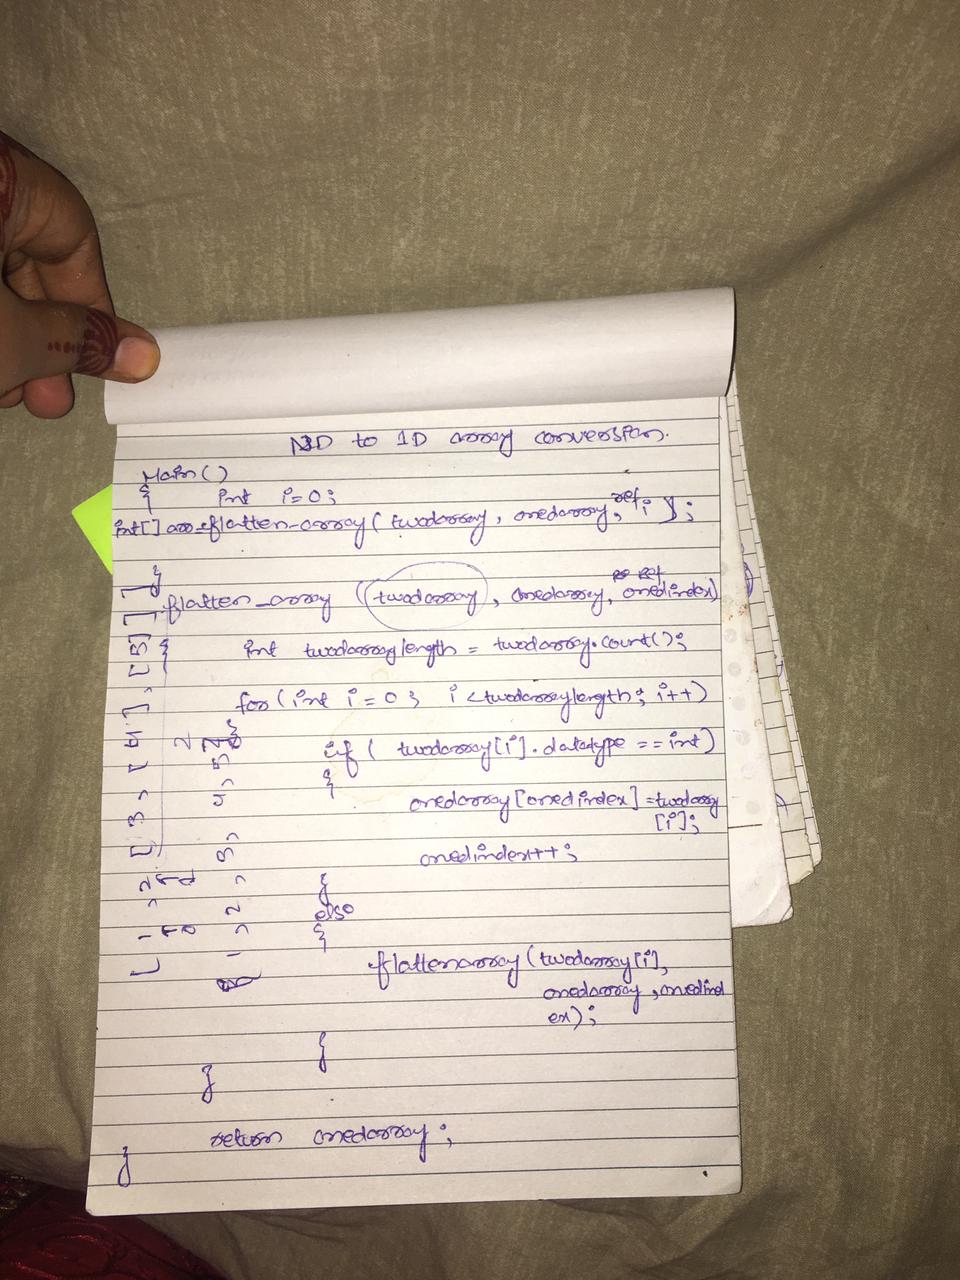 ND to 1D array conversion.
Main()
{ int i=0;
int[] arr=flatten_array( twodarray, onedarray, ref i );
}
flatten_array (twodarray, onedarray, ref onedindex)
{ int twodarraylength = twodarray.count();
for(int i=0; i<twodarraylength; i++)
{
if( twodarray[i].datatype == int)
{
onedarray[onedindex]=twodarray
[i];
onedindex++;
}
else
{
flattenarray(twodarray[i],
onedarray, onedind
ex);
}
}
return onedarray;
}
[1,2,[3,[4],[5]]]
1,2,3,4,5